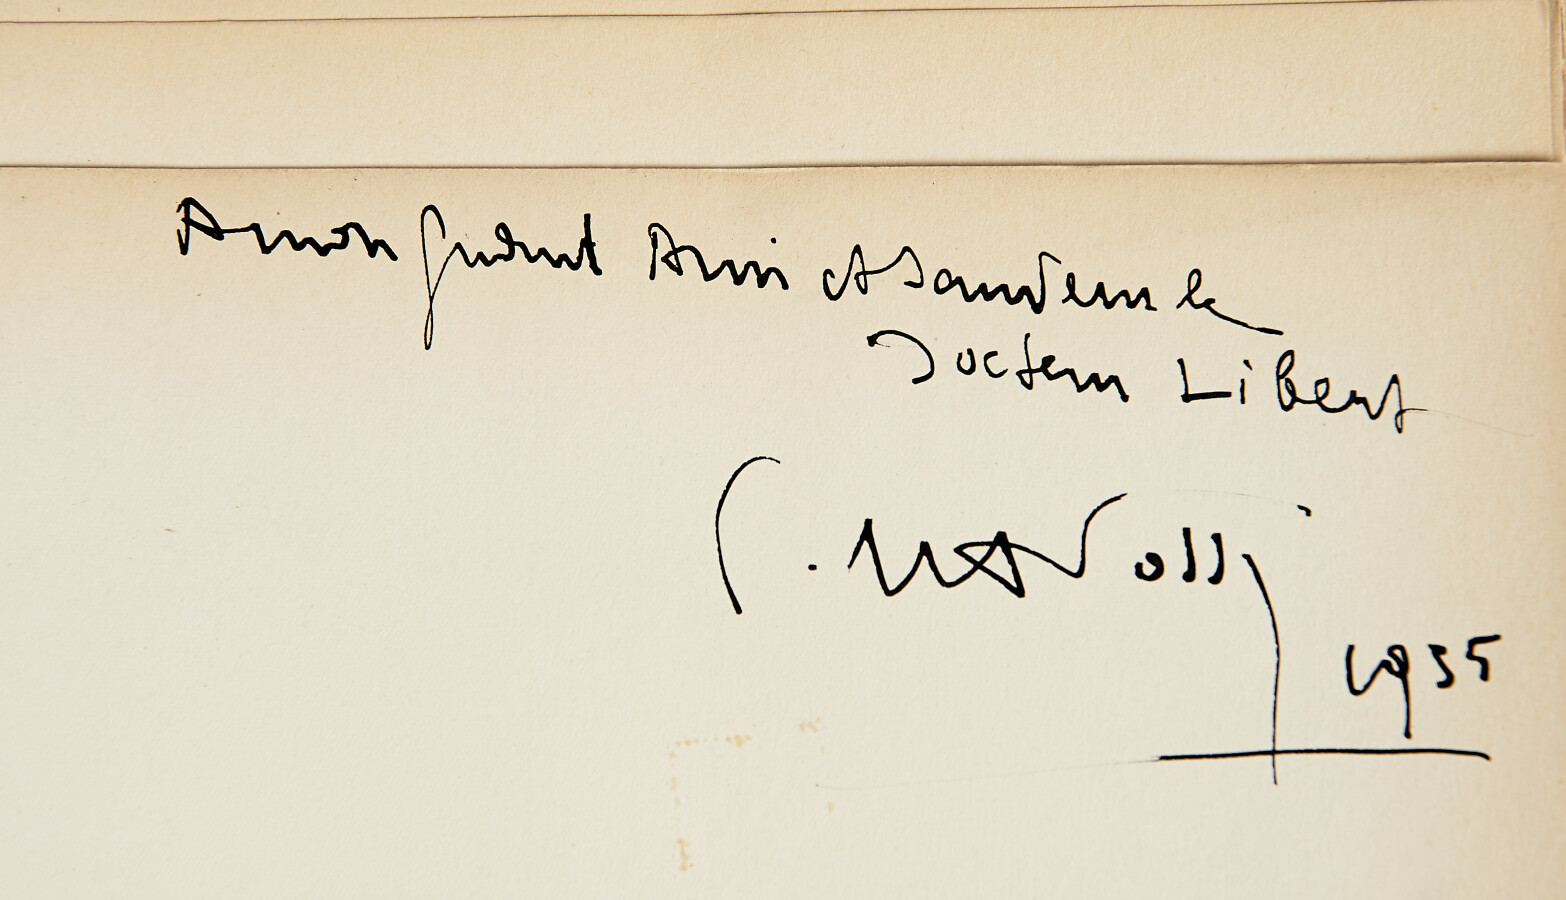 A mon grand Ami et Sauveur le
Docteur Libert
1935